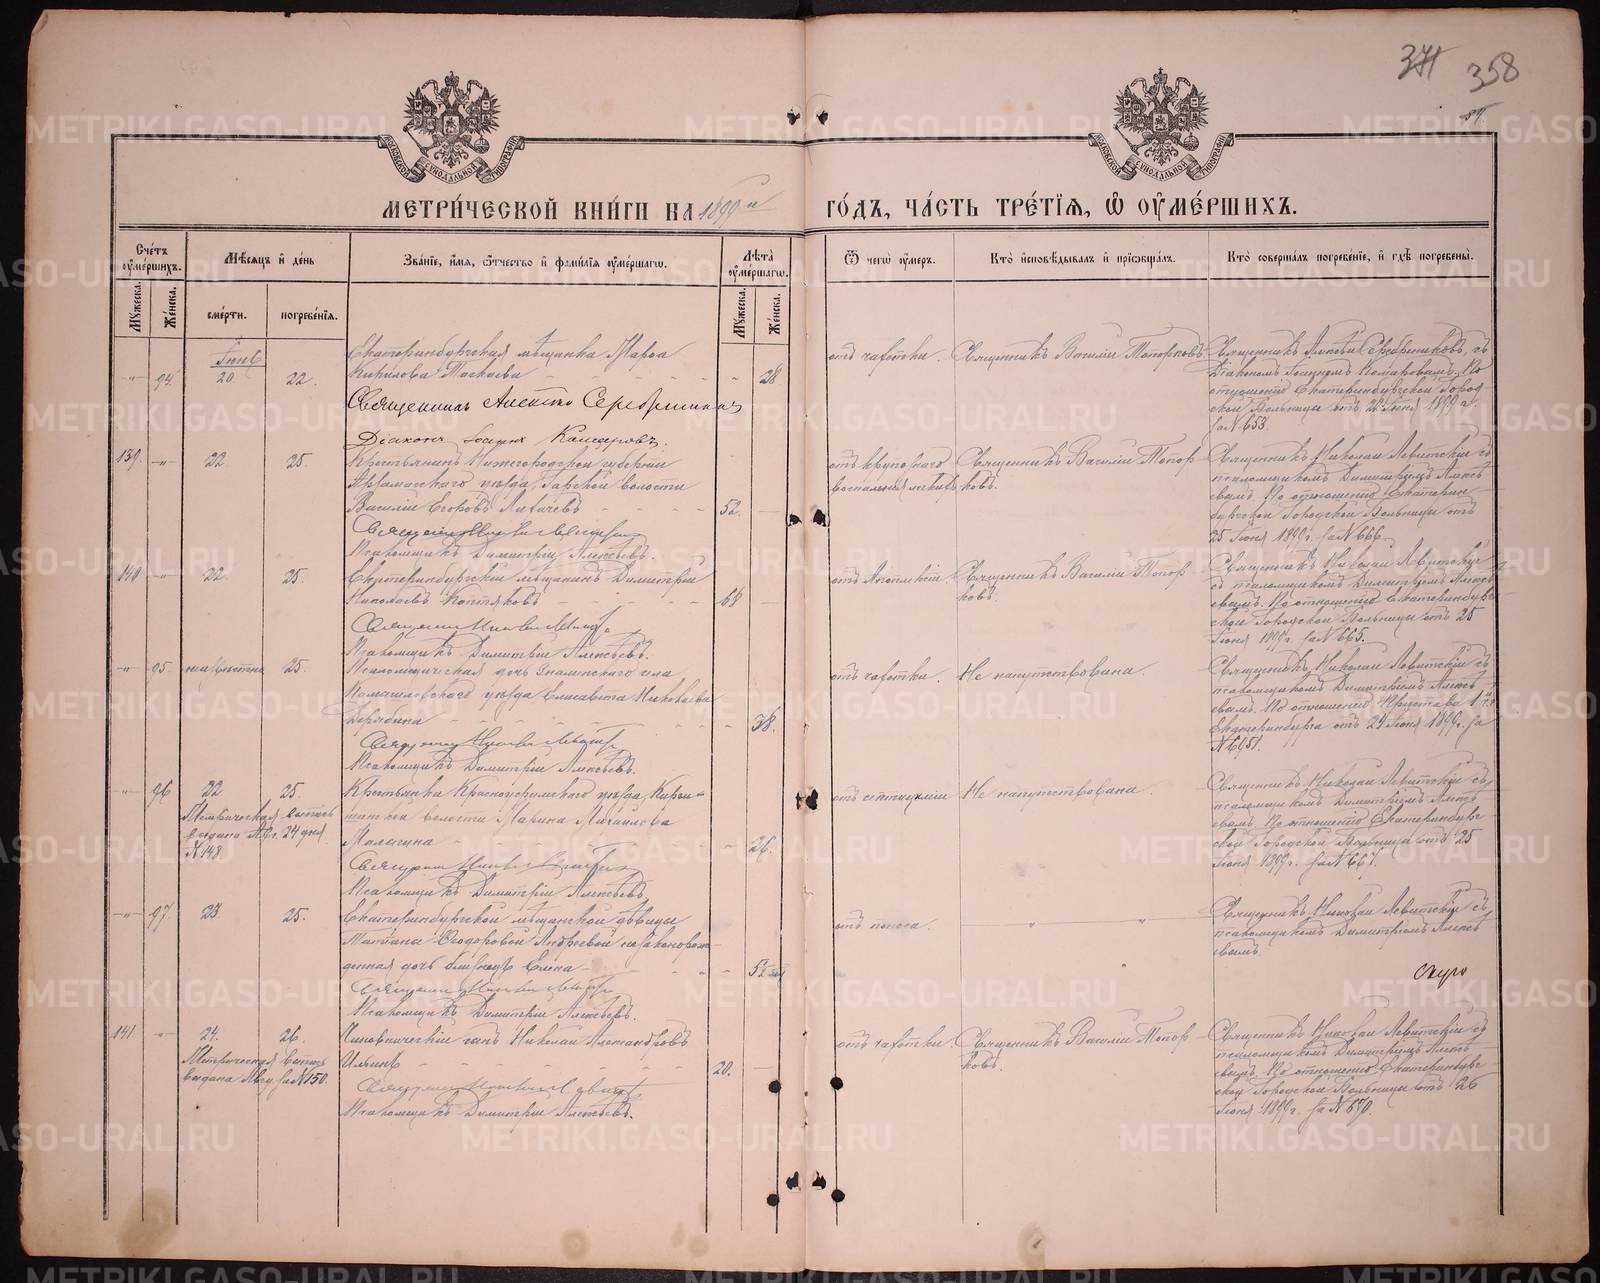 371 358
МЕТРИ́ЧЕСКОЙ КНИ́ГИ НА 1899 й ГО́ДЪ, ЧА́СТЬ ТРЕ́ТІѦ, Ѡ҆ ОУ҆МЕ́РШИХЪ.
Сче́тъ оу҆ме́ршихъ.
Мѣ́сѧцъ и҆ де́нь
Зва́нїе, и҆́мѧ, ѻ҆́тчество и҆ фами́лїѧ оу҆ме́ршагѡ.
Лѣ́та оу҆ме́ршагѡ.
Ѿ чегѡ̀ оу҆́меръ.
Кто̀ и҆сповѣ́дывалъ и҆ прїѡбща́лъ.
Кто̀ соверша́лъ погребе́нїе, и҆ гдѣ̀ погребены̀.
Мꙋ́жеска. Же́нска. сме́рти. погребе́нїѧ. Мꙋ́жеска. Же́нска.
Іюнь
-"- 94 20. 22.
Екатеринбургская мѣщанка Марѳа
Кирилова - - - " 28
Священникъ Алексѣй Серебренниковъ
Діаконъ Іоаннъ Комаровъ.
отъ чахотки. Священникъ Василій Топорковъ.
Священникъ Алексѣй Серебренниковъ, съ
діакономъ Іоанномъ Комаровымъ. По
отношенію Екатеринбургской Город-
ской Больницы отъ 22 Іюня 1899 г.
за N 653.
139. -"- 22 25.
Крестьянинъ Нижегородской губерніи
Арзамасскаго уѣзда волости
Василій Егоровъ Лихачевъ - - - 52. -
Псаломщикъ Димитрій Алексѣевъ.
отъ крупознаго
воспаленія легкихъ
Священникъ Василій Топор-
ковъ.
Священникъ Николай Левитскій съ
псаломщикомъ Димитріемъ Алексѣ-
евымъ. По отношенію Екатерин-
бургской Городской Больницы отъ
25 Іюня 1899 г. за N 666.
140 -"- 22. 25.
Екатеринбургскій мѣщанинъ Димитрій
Николаевъ Коптяковъ - - - 68 -
Псаломщикъ Димитрій Алексѣевъ.
отъ Апоплексіи.
Священникъ Василій Топор-
ковъ.
Священникъ Николай Левитскій
съ псаломщикомъ Димитріемъ Алексѣ-
евымъ. По отношенію Екатеринбург-
ской Городской Больницы отъ 25
Іюня 1899 г. за N 665.
-"- 95 неизвѣстна 25.
Псаломщическая дочь Знаменскаго села
Камышловскаго уѣзда Елисавета Николаева
Дерябина - - - - 38.
Псаломщикъ Димитрій Алексѣевъ.
отъ чахотки. Не напутствована.
Священникъ Николай Левитскій съ
псаломщикомъ Димитріемъ Алексѣ-
евымъ. По отношенію Пристава 1 й ч.
Екатеринбурга отъ 24 Іюня 1899 г. за
N 6951.
-"- 96 22 25.
Метрическая выпись
выдана Авг. 24 дня
N 148.
Крестьянка Красноуфимскаго уѣзда
волости Марина Михаилова
- - - - 26.
Псаломщикъ Димитрій Алексѣевъ.
отъ Не напутствована.
Священникъ Николай Левитскій съ
псаломщикомъ Димитріемъ Алексѣ-
евымъ. По отношенію Екатеринбург-
ской Городской Больницы отъ 25
Іюня 1899 г. за N 667.
-"- 97 23 25.
Екатеринбургской мѣщанской дѣвицы
Татіаны Ѳеодоровой Андреевой незаконорож-
денная дочь Елена - - -
Псаломщикъ Димитрій Алексѣевъ.
отъ поноса. " "
Священникъ Николай Левитскій съ
псаломщикомъ Димитріемъ Алексѣ-
евымъ.
141. -"- 24. 26.
Метрическая выпись
выдана за N 150.
Чиновническій сынъ Николай Александровъ
Ильинъ - - - - 20. -
Псаломщикъ Димитрій Алексѣевъ.
отъ чахотки.
Священникъ Василій Топор-
ковъ.
Священникъ Николай Левитскій съ
псаломщикомъ Димитріемъ Алексѣ-
евымъ. По отношенію Екатеринбург-
ской Городской Больницы отъ 26
Іюня 1899 г. за N 670.
METRIKI.GASO-URAL.RU